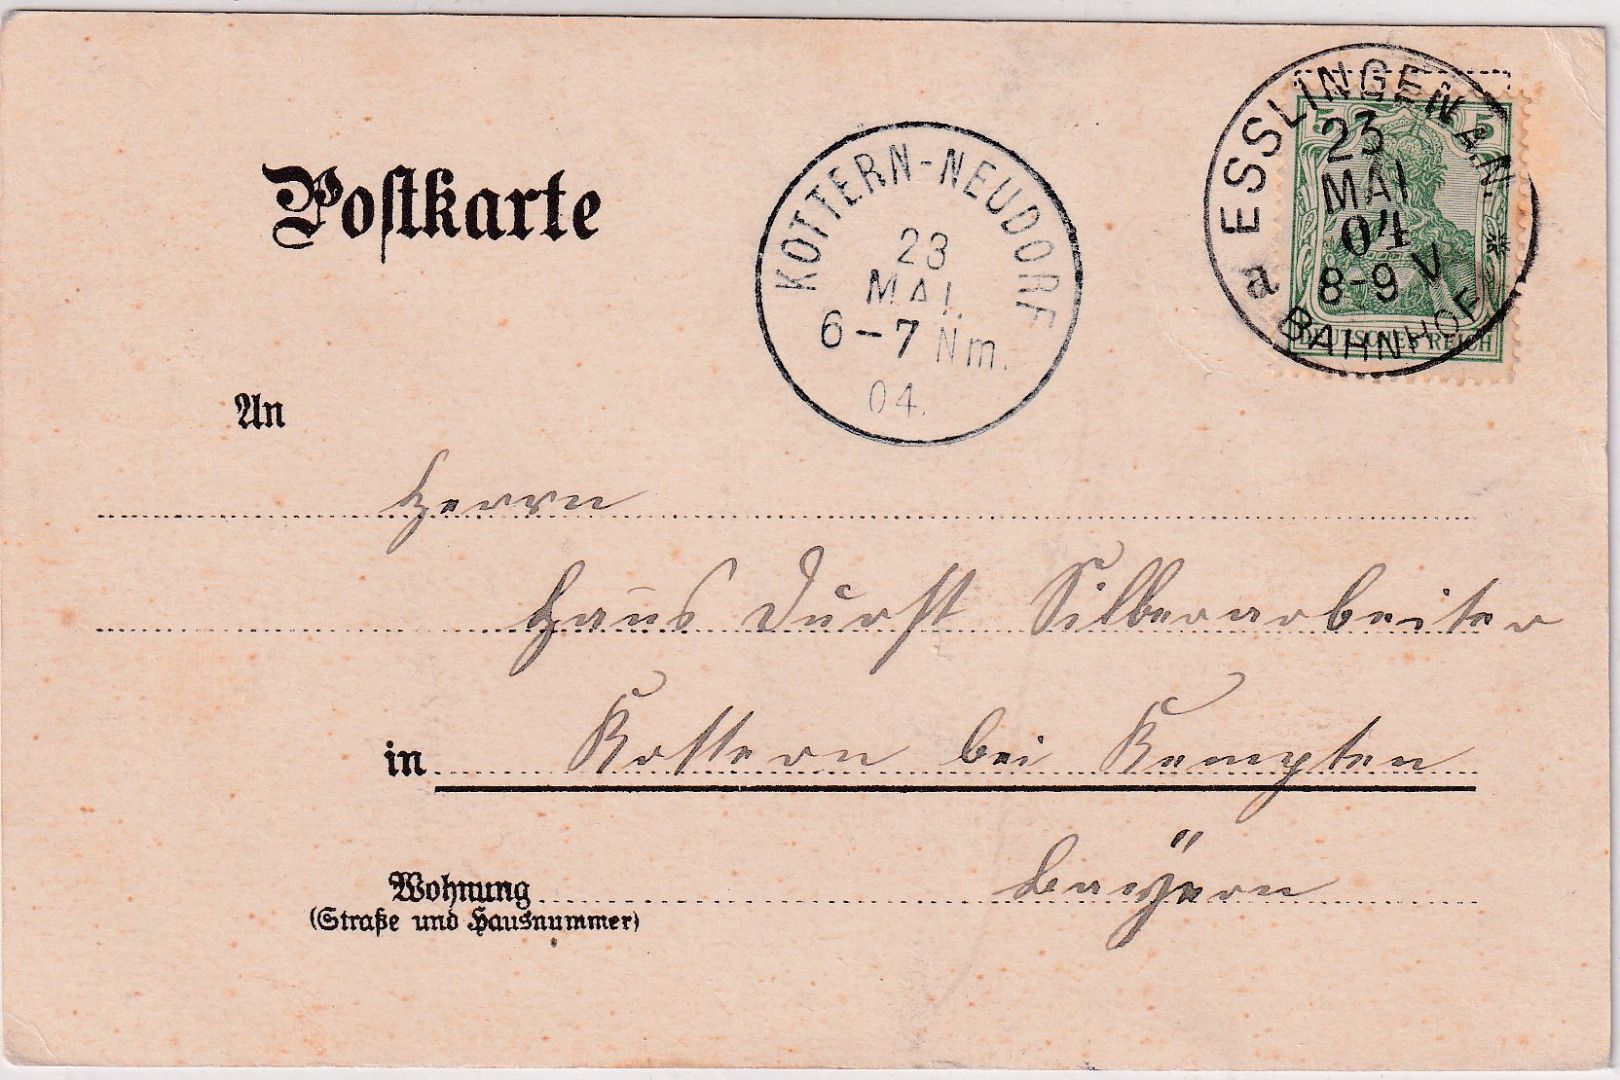 ESSLINGEN A/N.
5 5
23
MAI
04
8-9 V
a
*
BAHNHOF
DEUTSCHES REICH
KOTTERN-NEUDORF
23
MAI.
6-7 Nm.
04.
Postkarte
An
Herrn
Hans Durst Silberarbeiter
in Kottern bei Kempten
Wohnung Bayern
(Straße und Hausnummer)